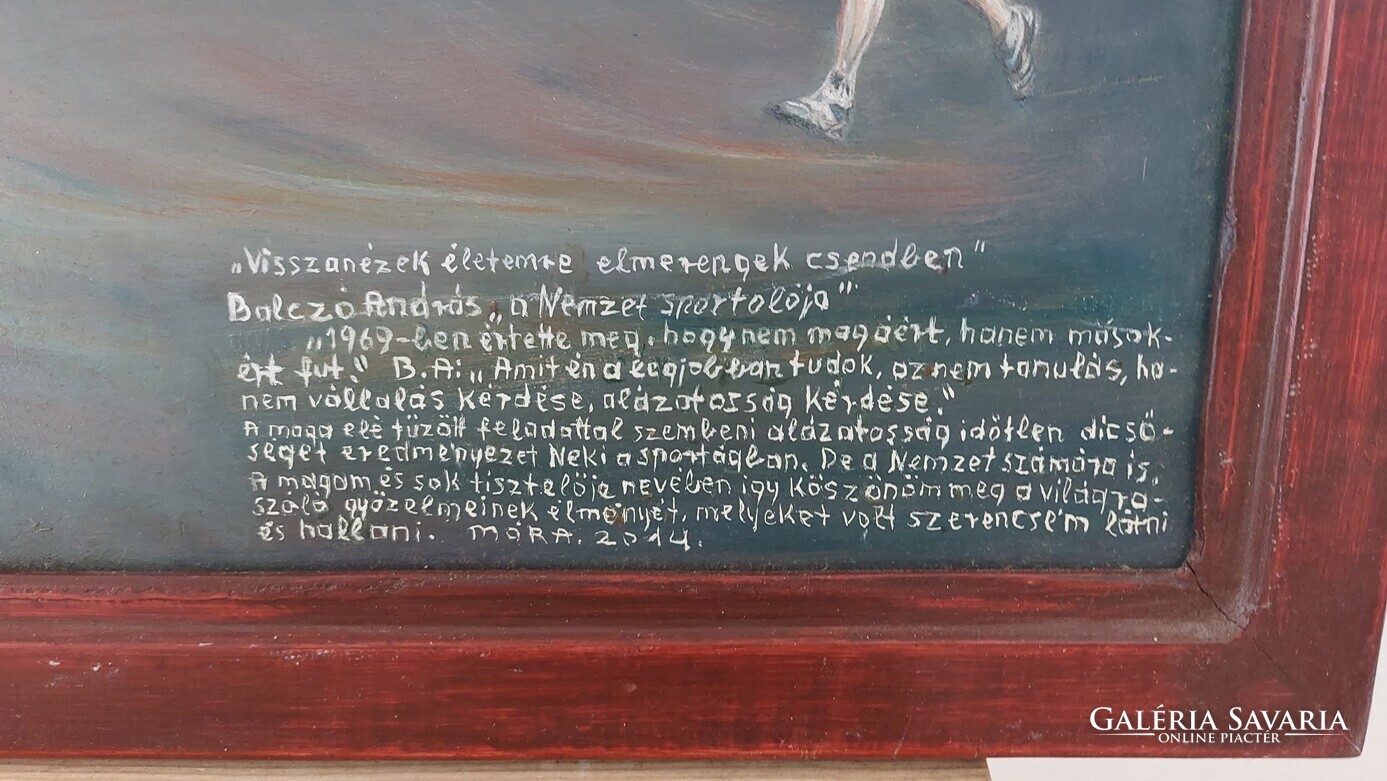 „Visszanézek életemre elmerengek csendben"
Balczó András „a Nemzet sportolója"
„1969-ben értette meg, hogy nem magáért, hanem mások-
ért fut." B.A: „Amit én a legjobban tudok, az nem tanulás, ha-
nem vállalás kérdése, alázatosság kérdése."
A maga elé tűzött feladattal szembeni alázatosság időtlen dicső-
séget eredményezet Neki a sportágban. De a Nemzet számára is.
A magam és sok tisztelője nevében így köszönöm meg a világra-
szóló győzelmeinek élményét, melyeket volt szerencsém látni
és hallani. MÓRA. 2014.
GALÉRIA SAVARIA
ONLINE PIACTÉR